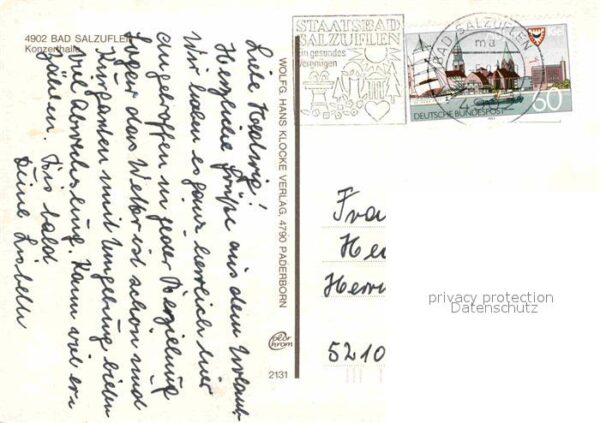 4902 BAD SALZUFLEN
Konzerthalle
Liebe Hedwig!
Herzliche Grüße aus dem Urlaub
Wir haben es ganz herrlich hier
angetroffen in jeder Beziehung
Sogar das Wetter ist schön und
Kurgarten mit Umgebung bieten
viel Abwechslung. Kann viel er-
zählen. Bis bald
Deine Liesbeth
WOLFG. HANS KLOCKE VERLAG, 4790 PADERBORN
color
chrom
2131
STAATSBAD
SALZUFLEN
Ein gesundes
Vergnügen
BAD SALZUFLEN 1
ma
Kiel
60
DEUTSCHE BUNDESPOST
Fra
He
Herrn
5210
privacy protection
Datenschutz